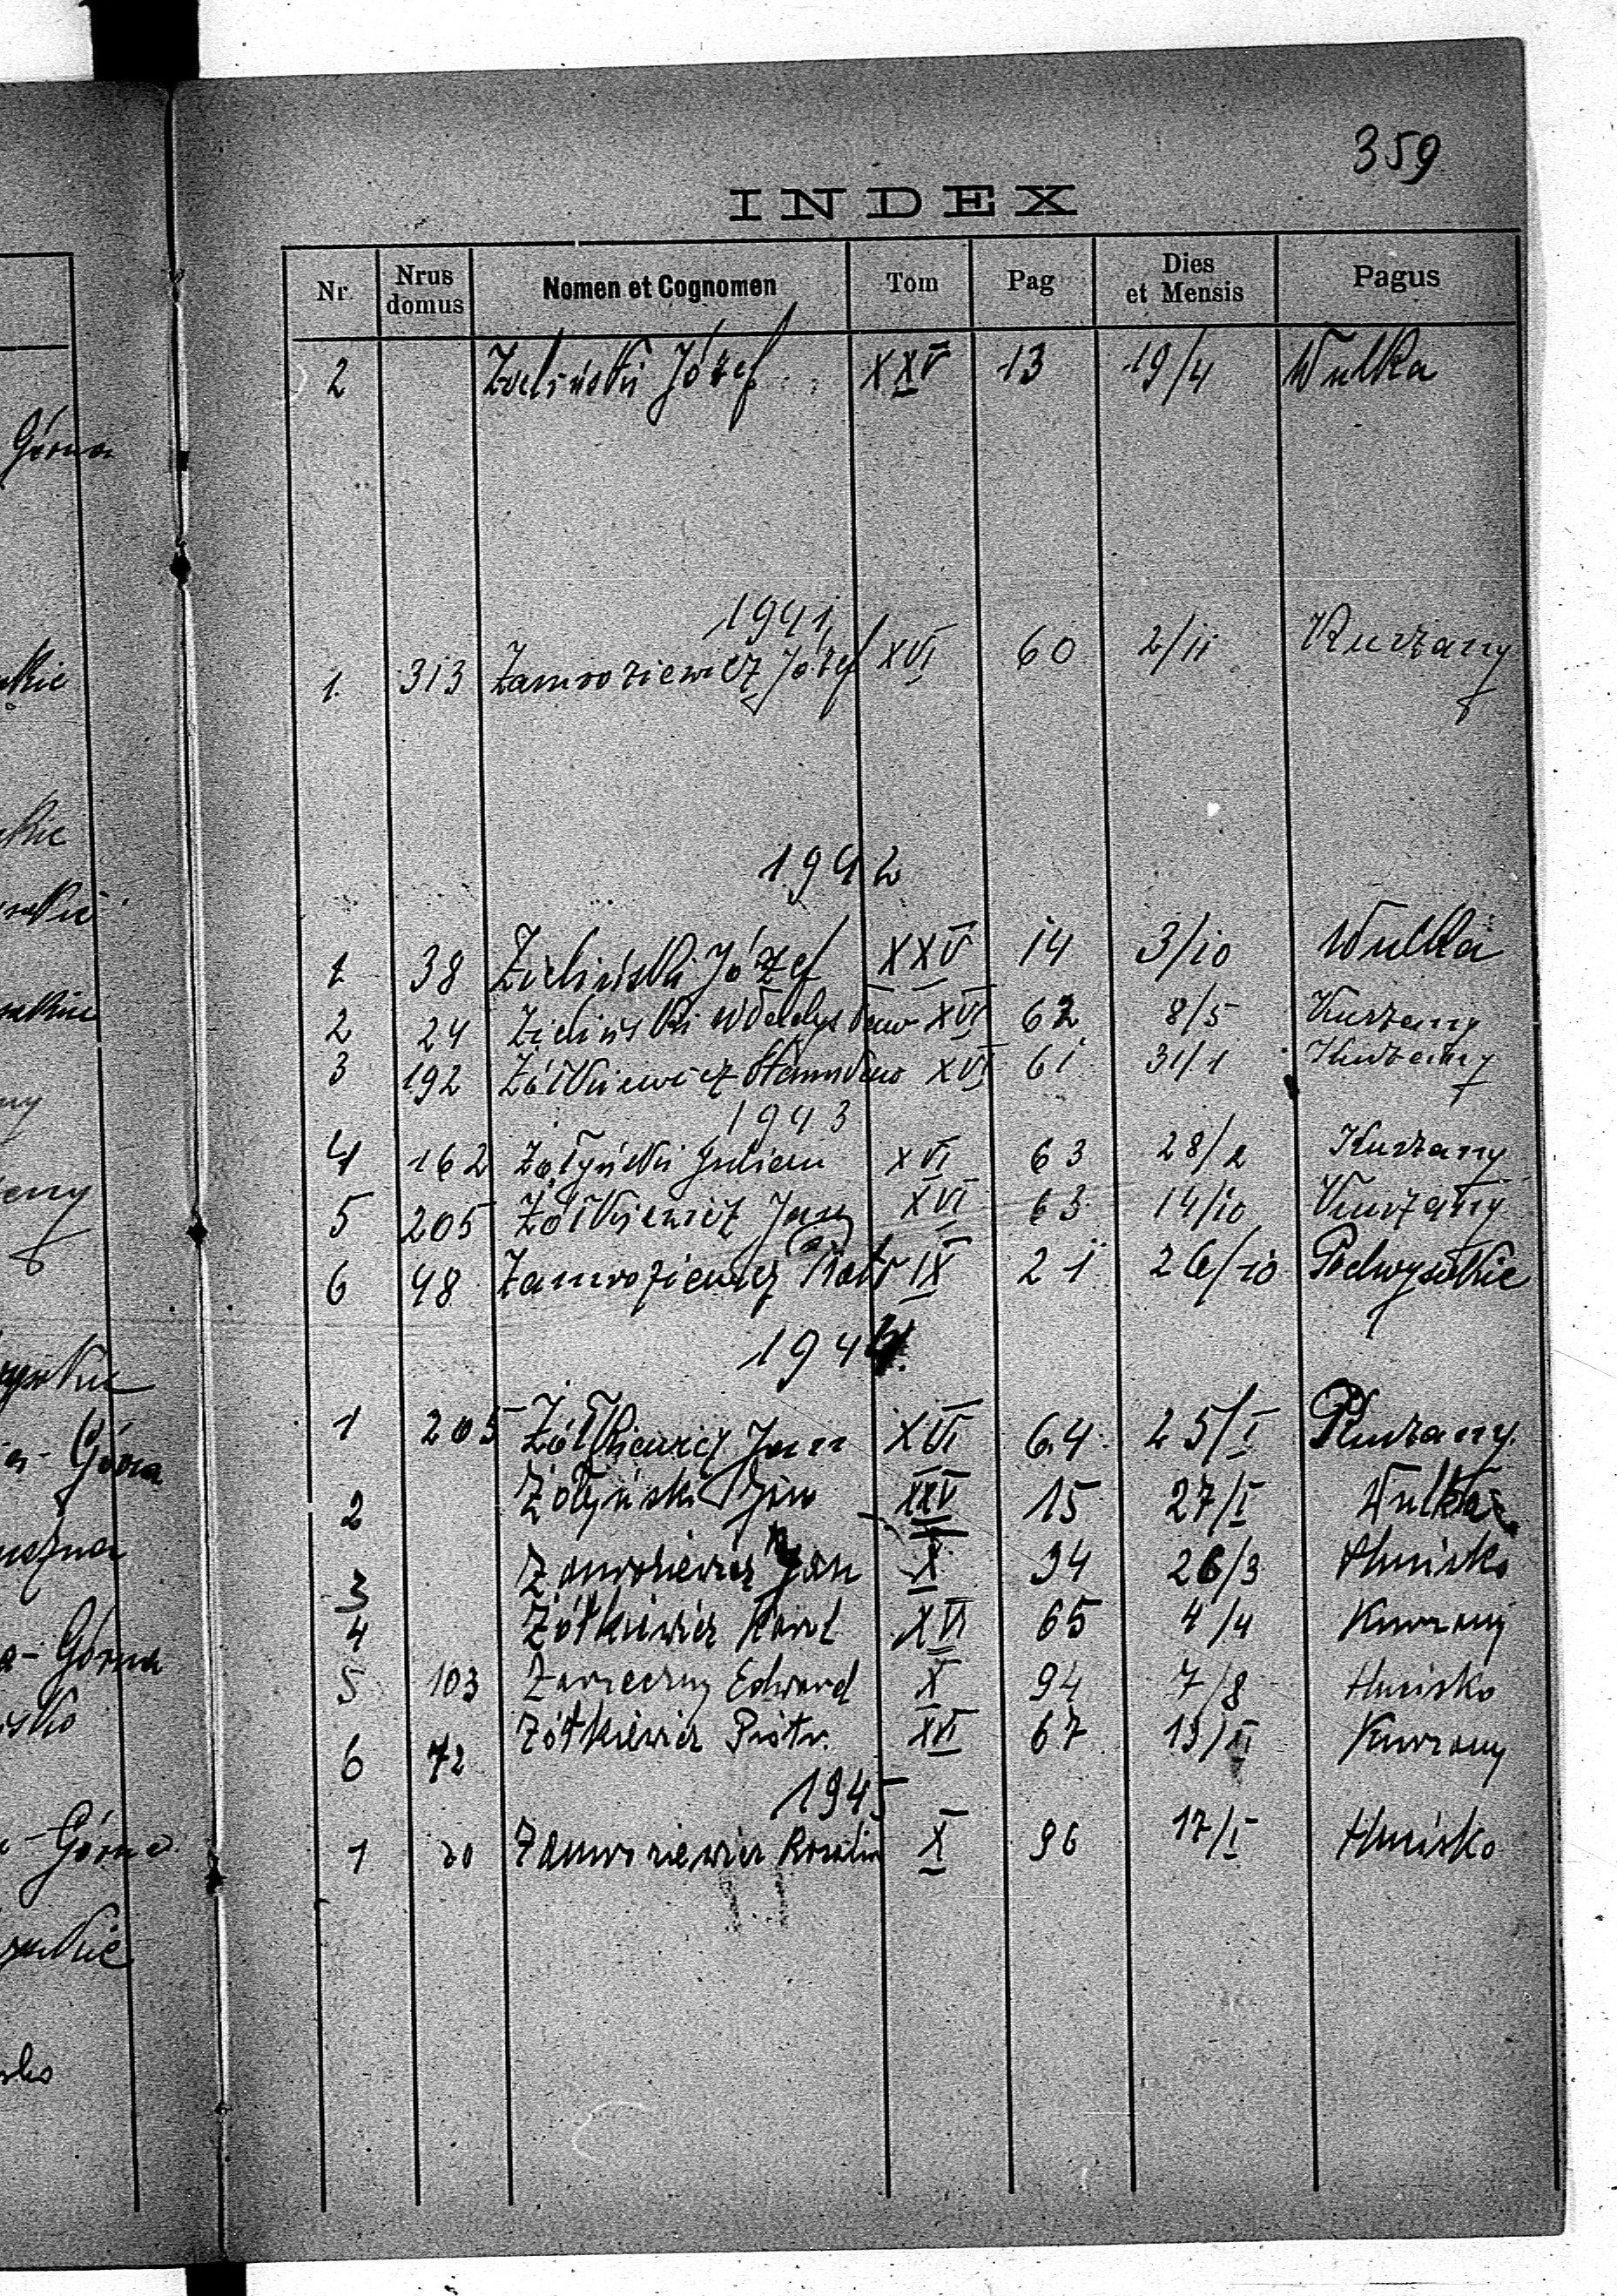 Górna
359
INDEX
Nr. Nrus domus Nomen et Cognomen Tom Pag Dies et Mensis Pagus
2 Zieliński Józef XXV 13 19/4 Wulka
1941
1. 313 Zamroziewicz Józef XVI 60 2/11 Kurzany
1942
1 38 Zieliński Józef XXV 14 3/10 Wulka
2 24 Zieliński Władysław XVI 62 8/5 Kurzany
3 192 Żółkiewicz Stanisław XVI 61 31/1 Kurzany
1943
4 162 Żołyński Julian XVI 63 28/2 Kurzany
5 205 Żółkiewicz Jan XVI 63 14/10 Kurzany
6 48 Zamroziewicz IX 21 26/10 Podwysokie
1944.
1 205 Żółkiewicz Jan XVI 64 25/I Kurzany
2 Żołyński XXV 15 27/I Wulka
3 Zamroziewicz Jan X 94 26/3 Hnisko
4 Żółkiewicz Karol XVI 65 4/4 Kurzany
5 103 Zarzeczny Edward X 94 7/8 Hnisko
6 72 Żółkiewicz Piotr. XVI 67 Kurzany
1945
1 20 Zamroziewicz Rozalia X 96 17/I Hnisko